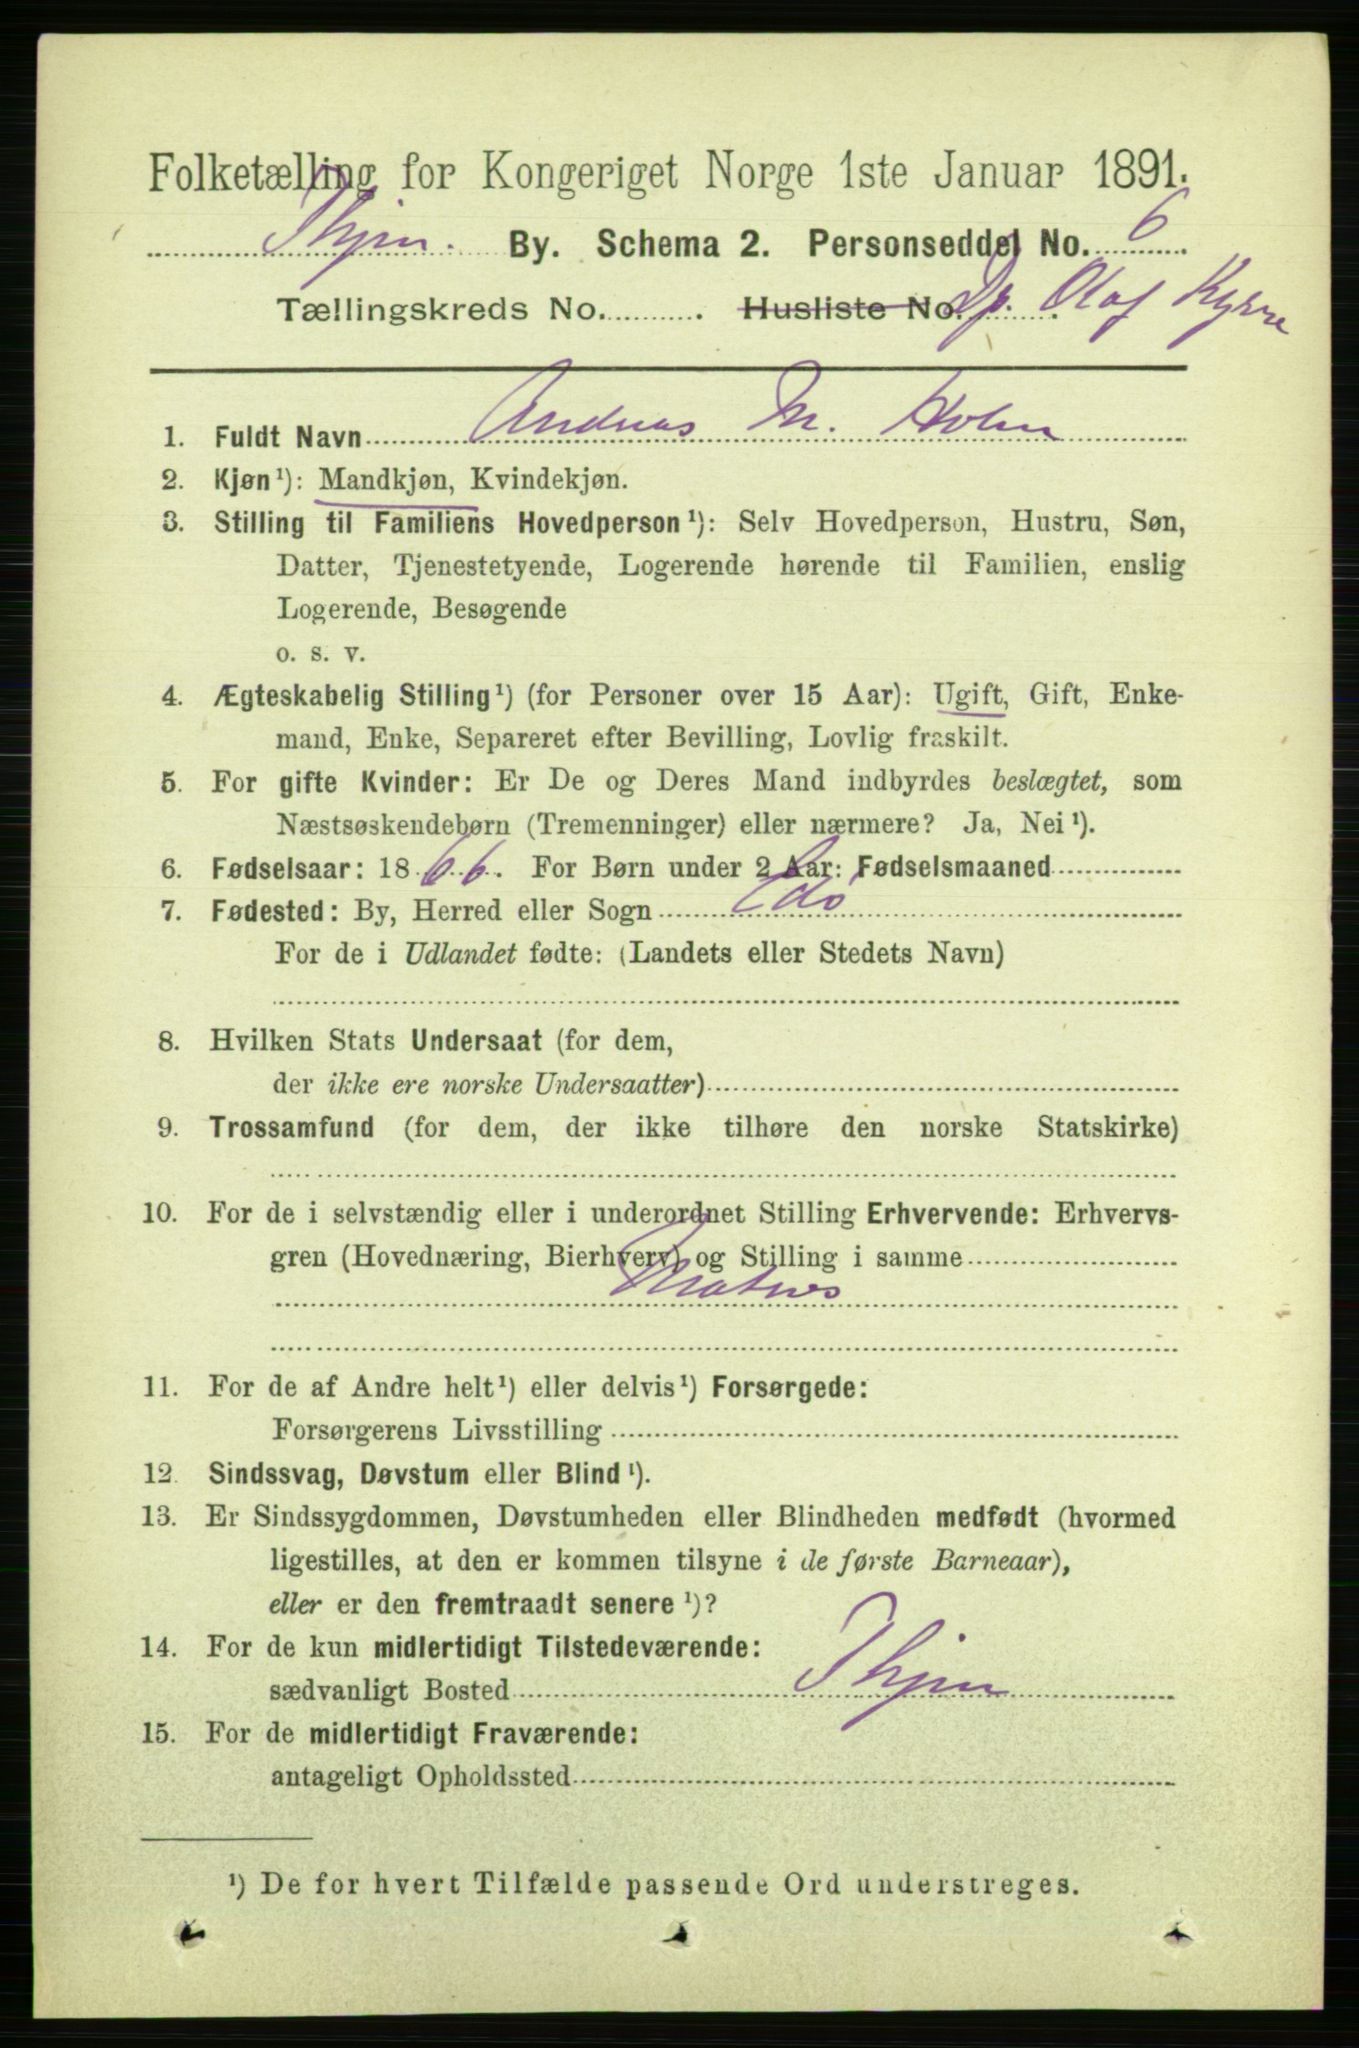 Folketælling for Kongeriget Norge 1ste Januar 1891.
Thjem. By. Schema 2. Personseddel No. 6
Tællingskreds No. . Husliste No. Dp. Olaf Kyrre
1. Fuldt Navn Andreas M. Holm
2. Kjøn¹): Mandkjøn, Kvindekjøn.
3. Stilling til Familiens Hovedperson¹): Selv Hovedperson, Hustru, Søn,
Datter, Tjenestetyende, Logerende hørende til Familien, enslig
Logerende, Besøgende
o. s. v.
4. Ægteskabelig Stilling¹) (for Personer over 15 Aar): Ugift, Gift, Enke-
mand, Enke, Separeret efter Bevilling, Lovlig fraskilt.
5. For gifte Kvinder: Er De og Deres Mand indbyrdes beslægtet, som
Næstsøskendebørn (Tremenninger) eller nærmere? Ja, Nei¹).
6. Fødselsaar: 1866. For Børn under 2 Aar: Fødselsmaaned
7. Fødested: By, Herred eller Sogn Edø
For de i Udlandet fødte: (Landets eller Stedets Navn)
8. Hvilken Stats Undersaat (for dem,
der ikke ere norske Undersaatter)
9. Trossamfund (for dem, der ikke tilhøre den norske Statskirke)
10. For de i selvstændig eller i underordnet Stilling Erhvervende: Erhvervs-
gren (Hovednæring, Bierhverv) og Stilling i samme
Matros
11. For de af Andre helt¹) eller delvis¹) Forsørgede:
Forsørgerens Livsstilling
12. Sindssvag, Døvstum eller Blind¹).
13. Er Sindssygdommen, Døvstumheden eller Blindheden medfødt (hvormed
ligestilles, at den er kommen tilsyne i de første Barneaar),
eller er den fremtraadt senere¹)?
14. For de kun midlertidigt Tilstedeværende:
sædvanligt Bosted Thjem
15. For de midlertidigt Fraværende:
antageligt Opholdssted
¹) De for hvert Tilfælde passende Ord understreges.